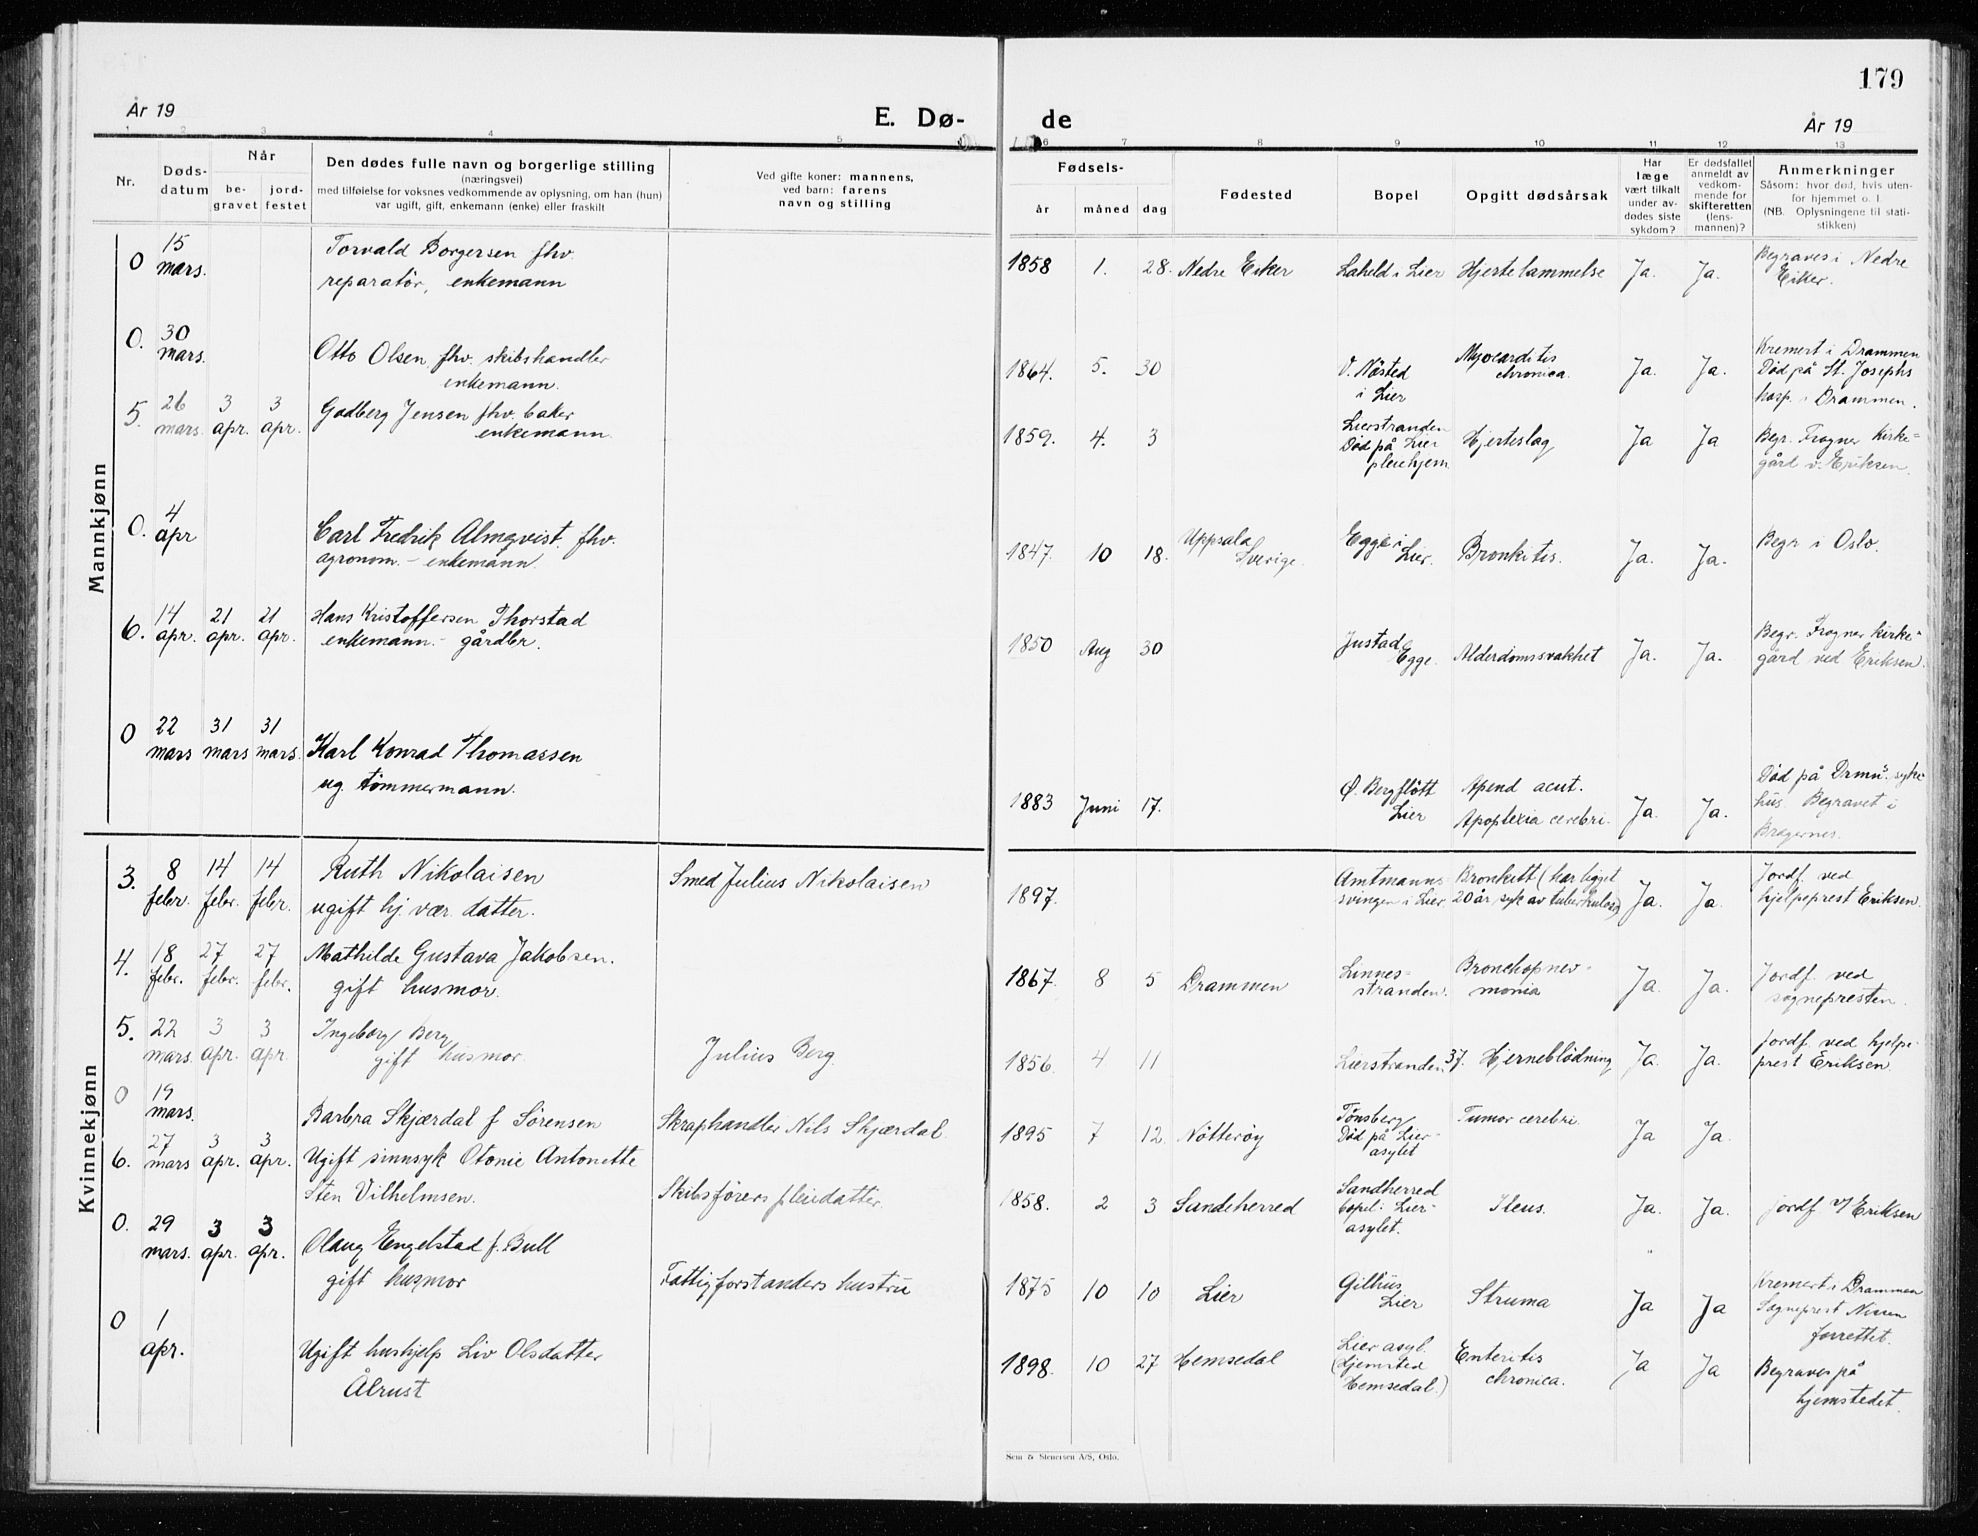 179
År 19
E. Dø-
de
År 19
1 2 3 4 5 6 7 8 9 10 11 12 13
Nr.
Døds-
datum
Når
be-
gravet
jord-
festet
Den dødes fulle navn og borgerlige stilling
(næringsvei)
med tilføielse for voksnes vedkommende av oplysning, om han (hun)
var ugift, gift, enkemann (enke) eller fraskilt
Ved gifte koner: mannens,
ved barn: farens
navn og stilling
Fødsels-
år
måned
dag
Fødested
Bopel
Opgitt dødsårsak
Har
læge
vært tilkalt
under av-
dødes siste
sykdom?
Er dødsfallet
anmeldt av
vedkom-
mende for
skifteretten
(lens-
mannen)?
Anmerkninger
Såsom: hvor død, hvis uten-
for hjemmet o. l.
(NB. Oplysningene til stati-
stikken)
Mannkjønn
0 15 mars. Torvald Borgersen fhv.
reparatør, enkemann
1858 1. 28. Nedre Eiker Laheld i Lier Hjertelammelse Ja. Ja. Begraves i Nedre
Eiker.
0. 30 mars. Otto Olsen fhv. skibshandler
enkemann.
1864. 5. 30 V. Nøsted
i Lier
Myocarditis
chronica.
Ja. Ja. Kremert i Drammen
Død på St. Josephs
hosp. i Drammen.
5. 26 mars. 3 apr. 3 apr. Godberg Jensen fhv. baker
enkemann.
1859. 4. 3 Lierstranden
Død på Lier
pleiehjem
Hjerteslag Ja Ja Begr. Frogner Kirke=
gård v. Eriksen.
0. 4 apr Carl Fredrik Almqvist. fhv.
agronom. - enkemann.
1847. 10 18. Uppsala
Sverige.
Egge i
Lier.
Bronkitis. Ja. Ja. Begr i Oslo.
6. 14 apr. 21 apr. 21 apr. Hans Kristoffersen Thorstad
enkemann - gårdbr.
1850 Aug 30 Justad
Egge.
Alderdomssvakhet Ja. Ja. Begr. Frogner Kirke=
gård ved Eriksen.
0 22 mars 31 mars 31 mars. Karl Konrad Thomassen
ug. tømmermann.
1883 Juni 17. Ø. Bergfløtt
Lier
Apend acut.
Apoplexia cerebri.
Ja. Ja. Død på Drmns. syke
hus. Begravet i
Bragernes.
Kvinnekjønn
3. 8 febr. 14 febr. 14 febr. Ruth Nikolaisen
ugift hj. vær. datter.
Smed Julius Nikolaisen
1897. Amtmanns-
svingen i Lier.
Bronkitt (har ligget
20 år syk av tuberkulose)
Ja. Ja. Jordf. ved
hjelpeprest Eriksen.
4. 18 febr. 27 febr. 27 febr. Mathilde Gustava Jakobsen.
gift husmor.
1867. 8 5 Drammen Linnes=
stranden.
Bronchopnev-
monia
Ja. Ja. Jordf. ved
sognepresten.
5. 22 mars. 3 apr. 3 apr. Ingeborg Berg
gift husmor.
Julius Berg.
1856. 4 11 Lierstranden 37. Hjerneblødning Ja. Ja. Jordf. ved hjelpe-
prest Eriksen.
0 19 mars. Barbra Skjærdal f Sørensen Skraphandler Nils Skjærdal.
1895 7 12. Nøtterøy Tønsberg
Død på Lier-
asylet
Tumor cerebri. Ja Ja.
6. 27 mars 3 apr. 3 apr. Ugift sinnsyk Otonie Antonette
Sten Vilhelmsen.
Skibsførers pleiedatter.
1858. 2 3 Sandeherred Sandherred
bopel: Lier-
asylet.
Ileus. Ja. Ja. Jordf. v/ Eriksen
0. 29 mars. 3 apr. 3 apr. Olaug Engelstad f. Bull
gift husmor
Fattigforstanders hustru
1875 10 10 Lier Gilhus
Lier
Struma Ja Ja Kremert i Drammen
Sogneprest Nissen
forrettet.
0 1 apr. Ugift hushjelp Liv Olsdatter
Ålrust
1898. 10 27 Hemsedal Lier asyl.
(Hjemsted
Hemsedal.)
Enteritis
chronica.
Ja Ja Begraves på
hjemstedet.
Sem & Stenersen A/S, Oslo.